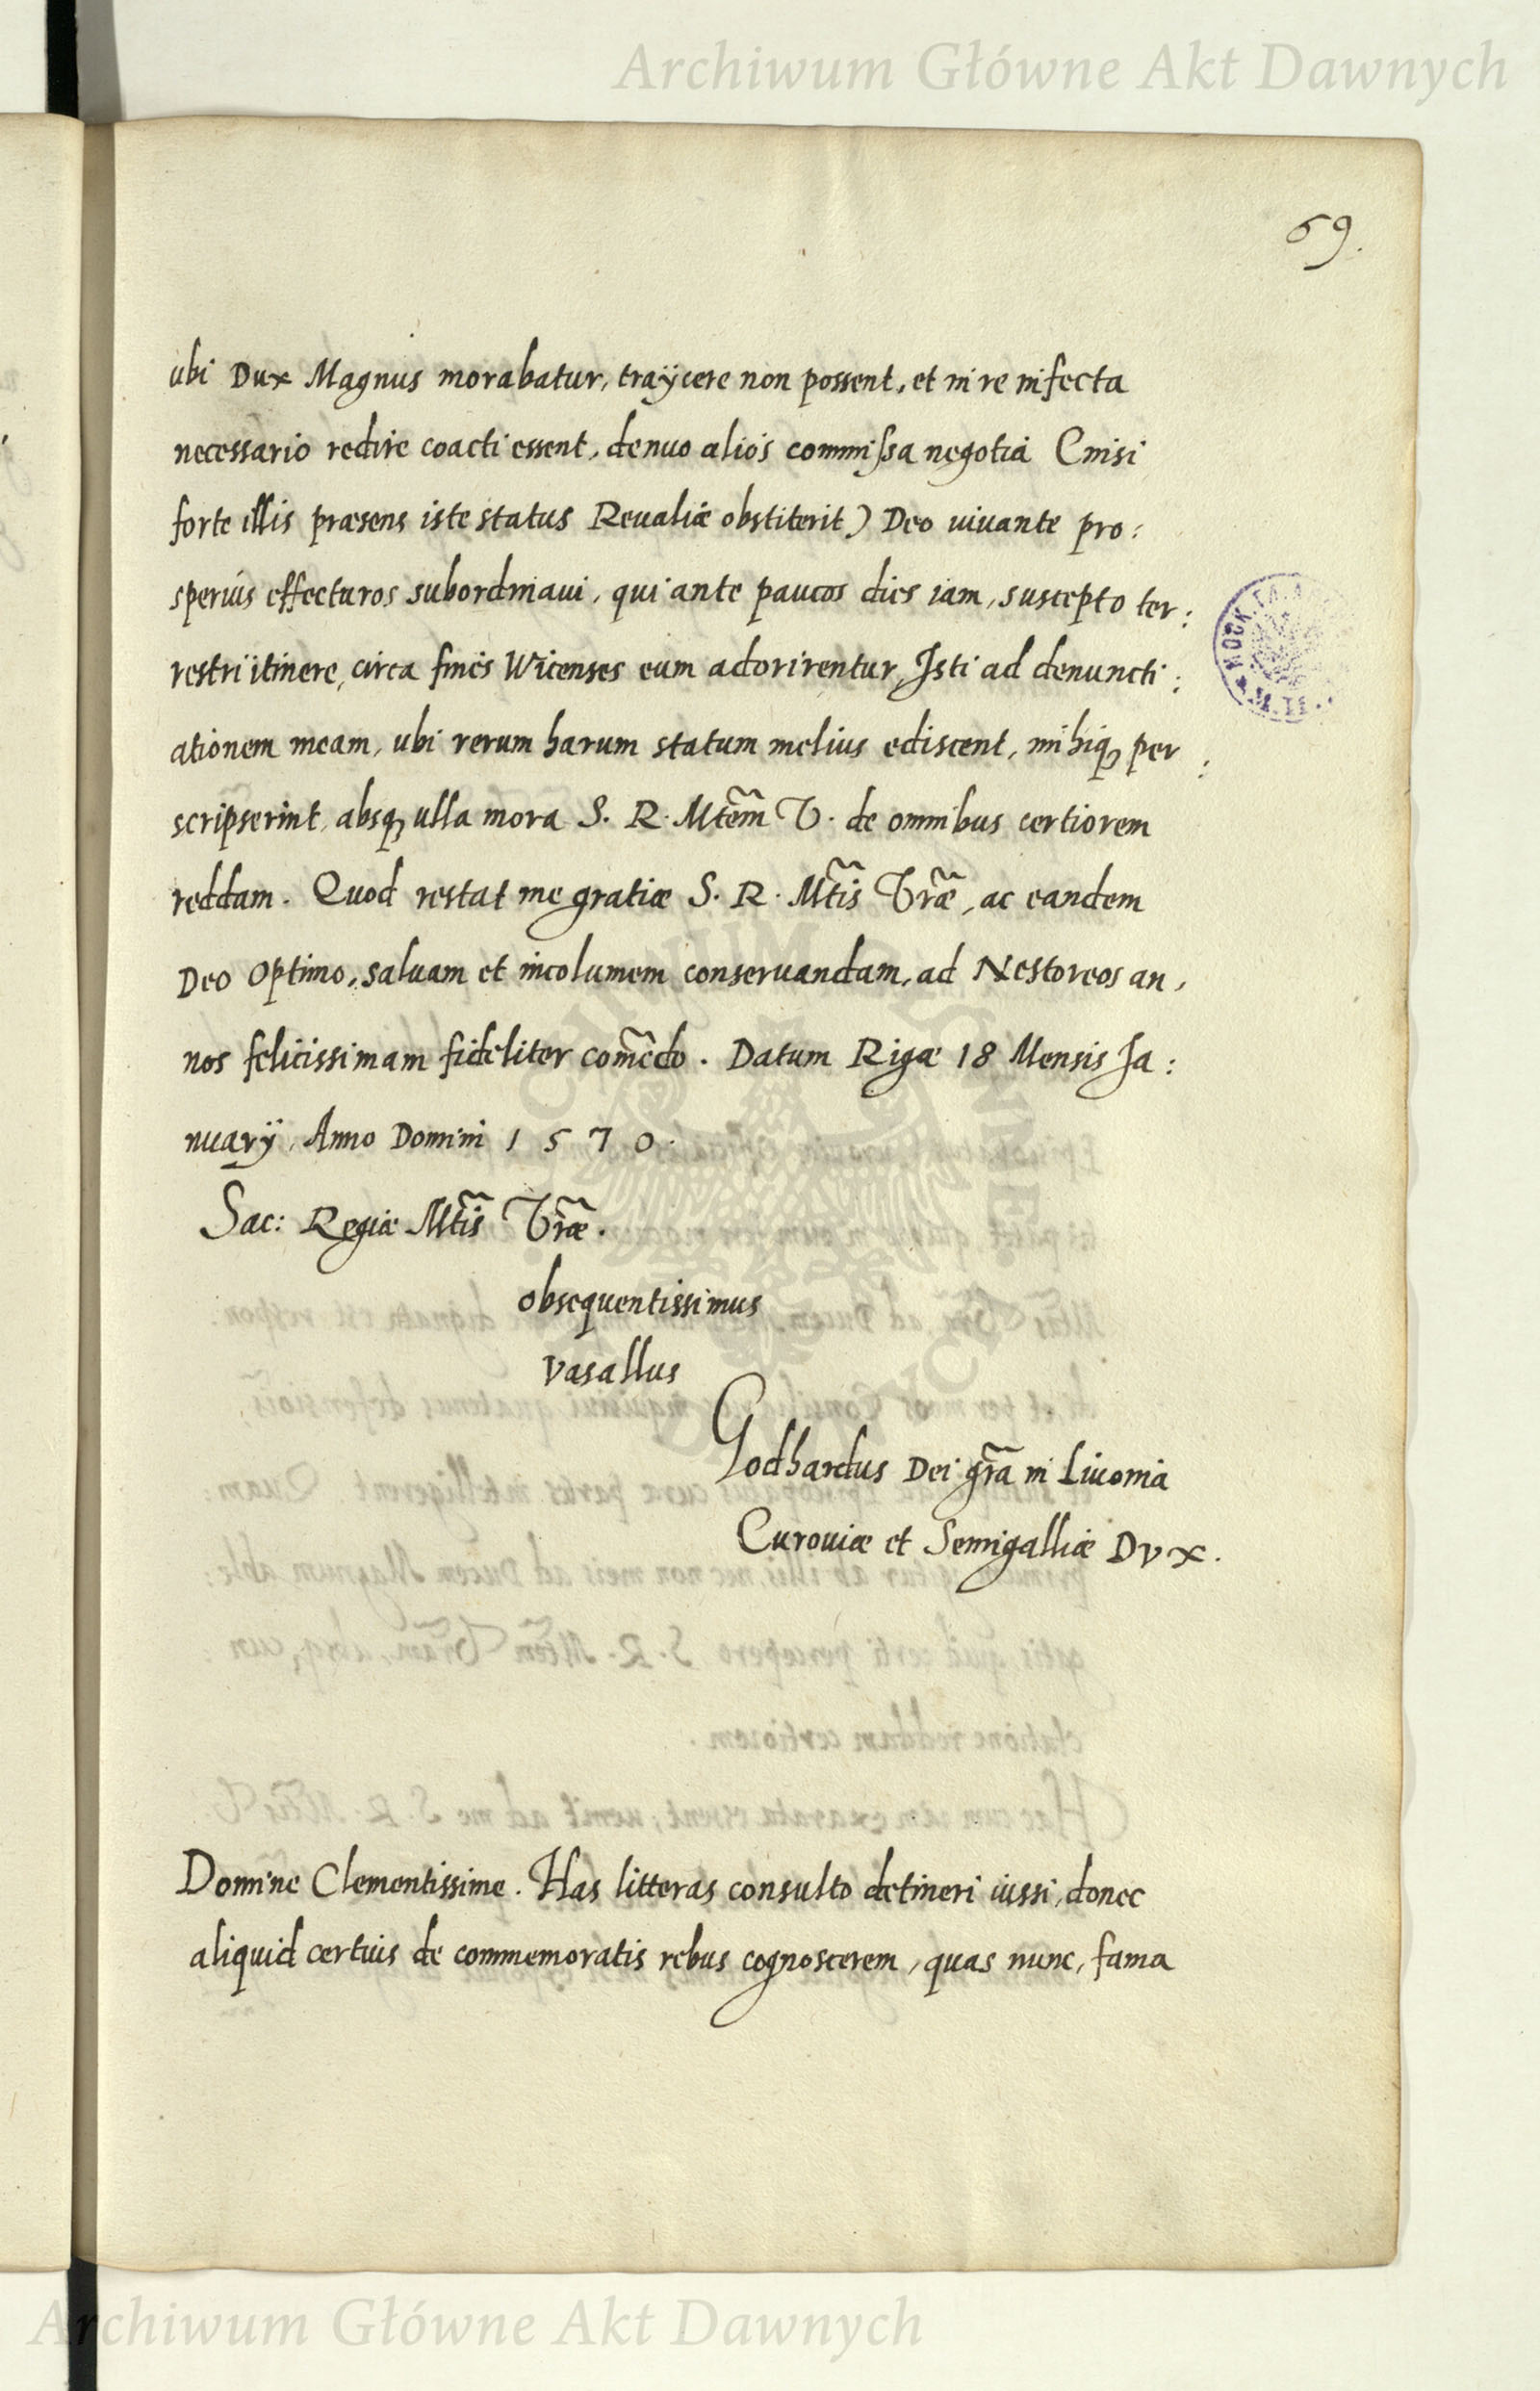 Archiwum Główne Akt Dawnych
69.
ubi Dux Magnus morabatur, traÿcere non possent, et in re infecta
necessario redire coacti essent, denuo alios commissa negotia (nisi
forte illis præsens iste status Reualiæ obstiterit) Deo iuuante pro:
sperius effecturos subordinaui, qui ante paucos dies iam, suscepto ter:
restri itinere, circa fines Wicenses eum adorirentur, Isti ad denuncti:
ationem meam, ubi rerum harum statum melius ediscent, mihiq₃ per:
scripserint, absq₃ ulla mora S. R. Mtem̃ V. de omnibus certiorem
reddam. Quod restat me gratiæ S. R. Mtis̃ Vræ̃, ac eandem
Deo Optimo, saluam et incolumem conseruandam, ad Nestoreos an,
nos felicissimam fideliter com̃ẽdo. Datum Rigæ 18 Mensis Ja:
nuarÿ, Anno Domini 1570.
Sac: Regiæ Mtis̃ Vræ̃.
obsequentissimus
Vasallus
Godhardus Dei gr̃a in Liuonia
Curouiæ et Semigalliæ Dvx.
Domine Clementissime. Has litteras consulto detineri iussi, donec
aliquid certius de commemoratis rebus cognoscerem, quas nunc, fama
Archiwum Główne Akt Dawnych